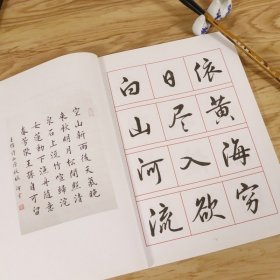 空山新雨後天氣晚
來秋明月松間照清
泉石上流竹喧歸浣
女蓮動下漁舟隨意
春芳歇王孫自可留
白日依
山尽黄
河入海
流欲穷